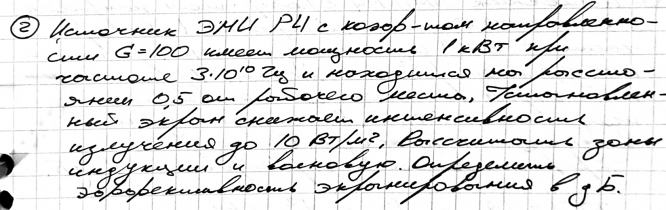 ② Источник ЭМИ РЧ с коэф-том направленно-
сти G=100 имеет мощность 1 кВт при
частоте 3·10¹⁰ Гц и находится на рассто-
янии 0,5 от рабочего места. Установлен-
ный экран снижает интенсивность
излучения до 10 Вт/м². Рассчитать зоны
индукции и волновую. Определить
эффективность экранирования в дБ.